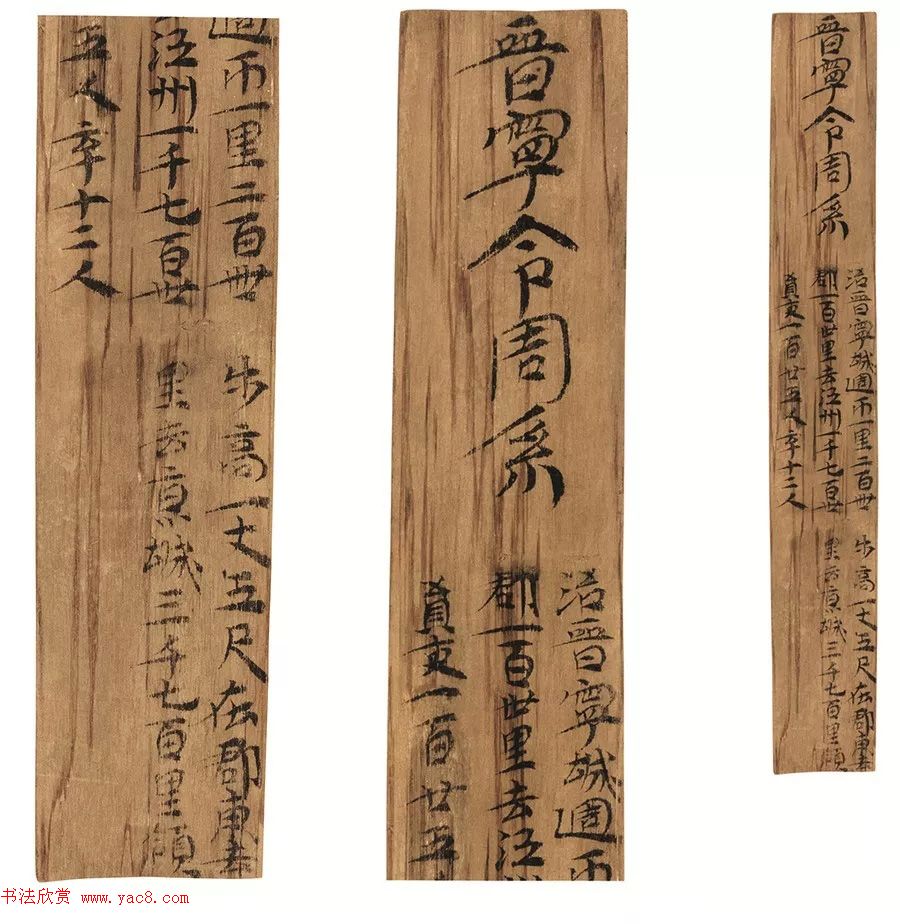 晉寧令周系
治晉寧城週帀一里二百卌步高一丈五尺在郡東去
郡一百卅里去江州一千七百卅里去京城三千七百里領
員吏一百廿五人卒十二人
晉寧令周系
治晉寧城週帀
郡一百卅里去江
員吏一百廿五
週帀一里二百卌步高一丈五尺在郡東去
江州一千七百卅里去京城三千七百里領
五人卒十二人
书法欣赏 www.yac8.com